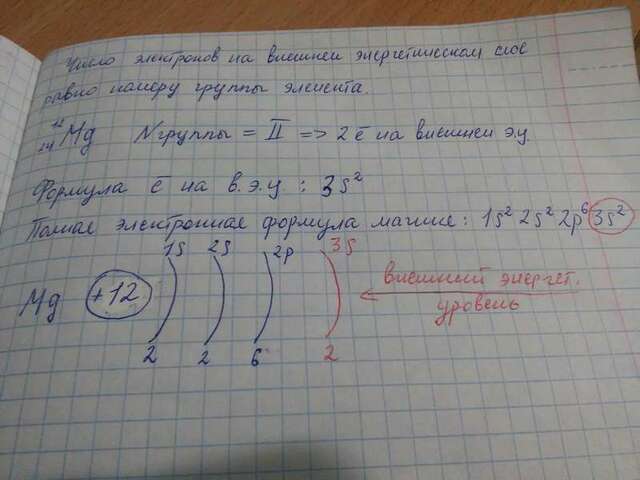 Число электронов на внешнем энергетическом слое
равно номеру группы элемента.
12 24 Mg N группы = II => 2 ē на внешнем э.у.
Формула ē на в.э.у.: 3s²
Полная электронная формула магния: 1s² 2s² 2p⁶ 3s²
1s 2s 2p 3s
Mg +12 внешний энергет.
уровень
2 2 6 2